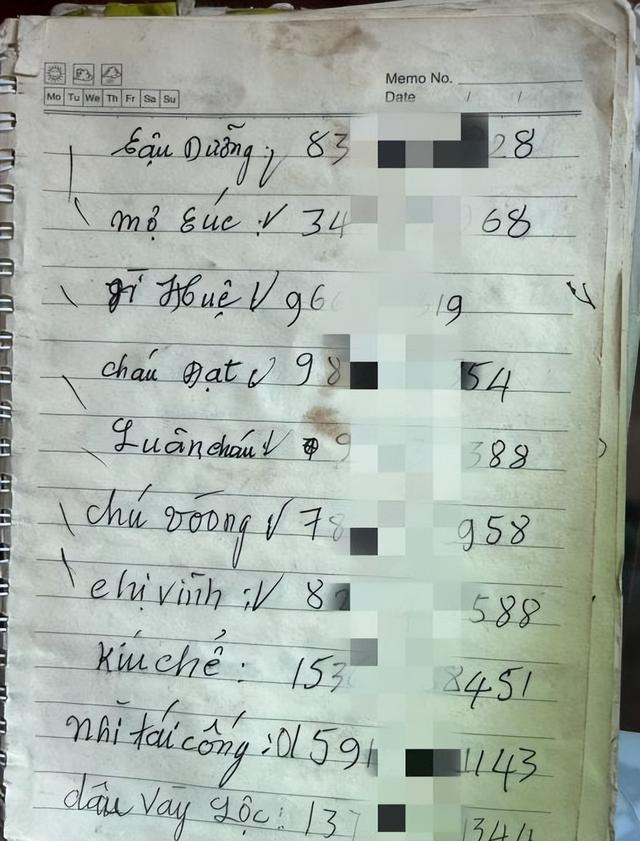 Memo No.
Date / /
Mo Tu We Th Fr Sa Su
Cậu Dưỡng: 83 28
mợ Cúc :V 34 68
gì Huệ V 96 19
cháu Đạt V 98 54
Luân cháu V 9 388
chú Võong V 78 958
chị Vinh :V 82 588
Kíu chể: 153 8451
nhì tái cống :01591 1143
dâu Vay Lộc: 137 344